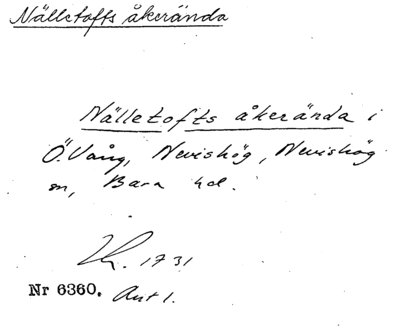 Nälletofts åkerända
Nälletofts åkerända i
Ö. Vång, Nevishög, Nevishög
sn, Bara hd.
1731
Nr 6360. Avt 1.